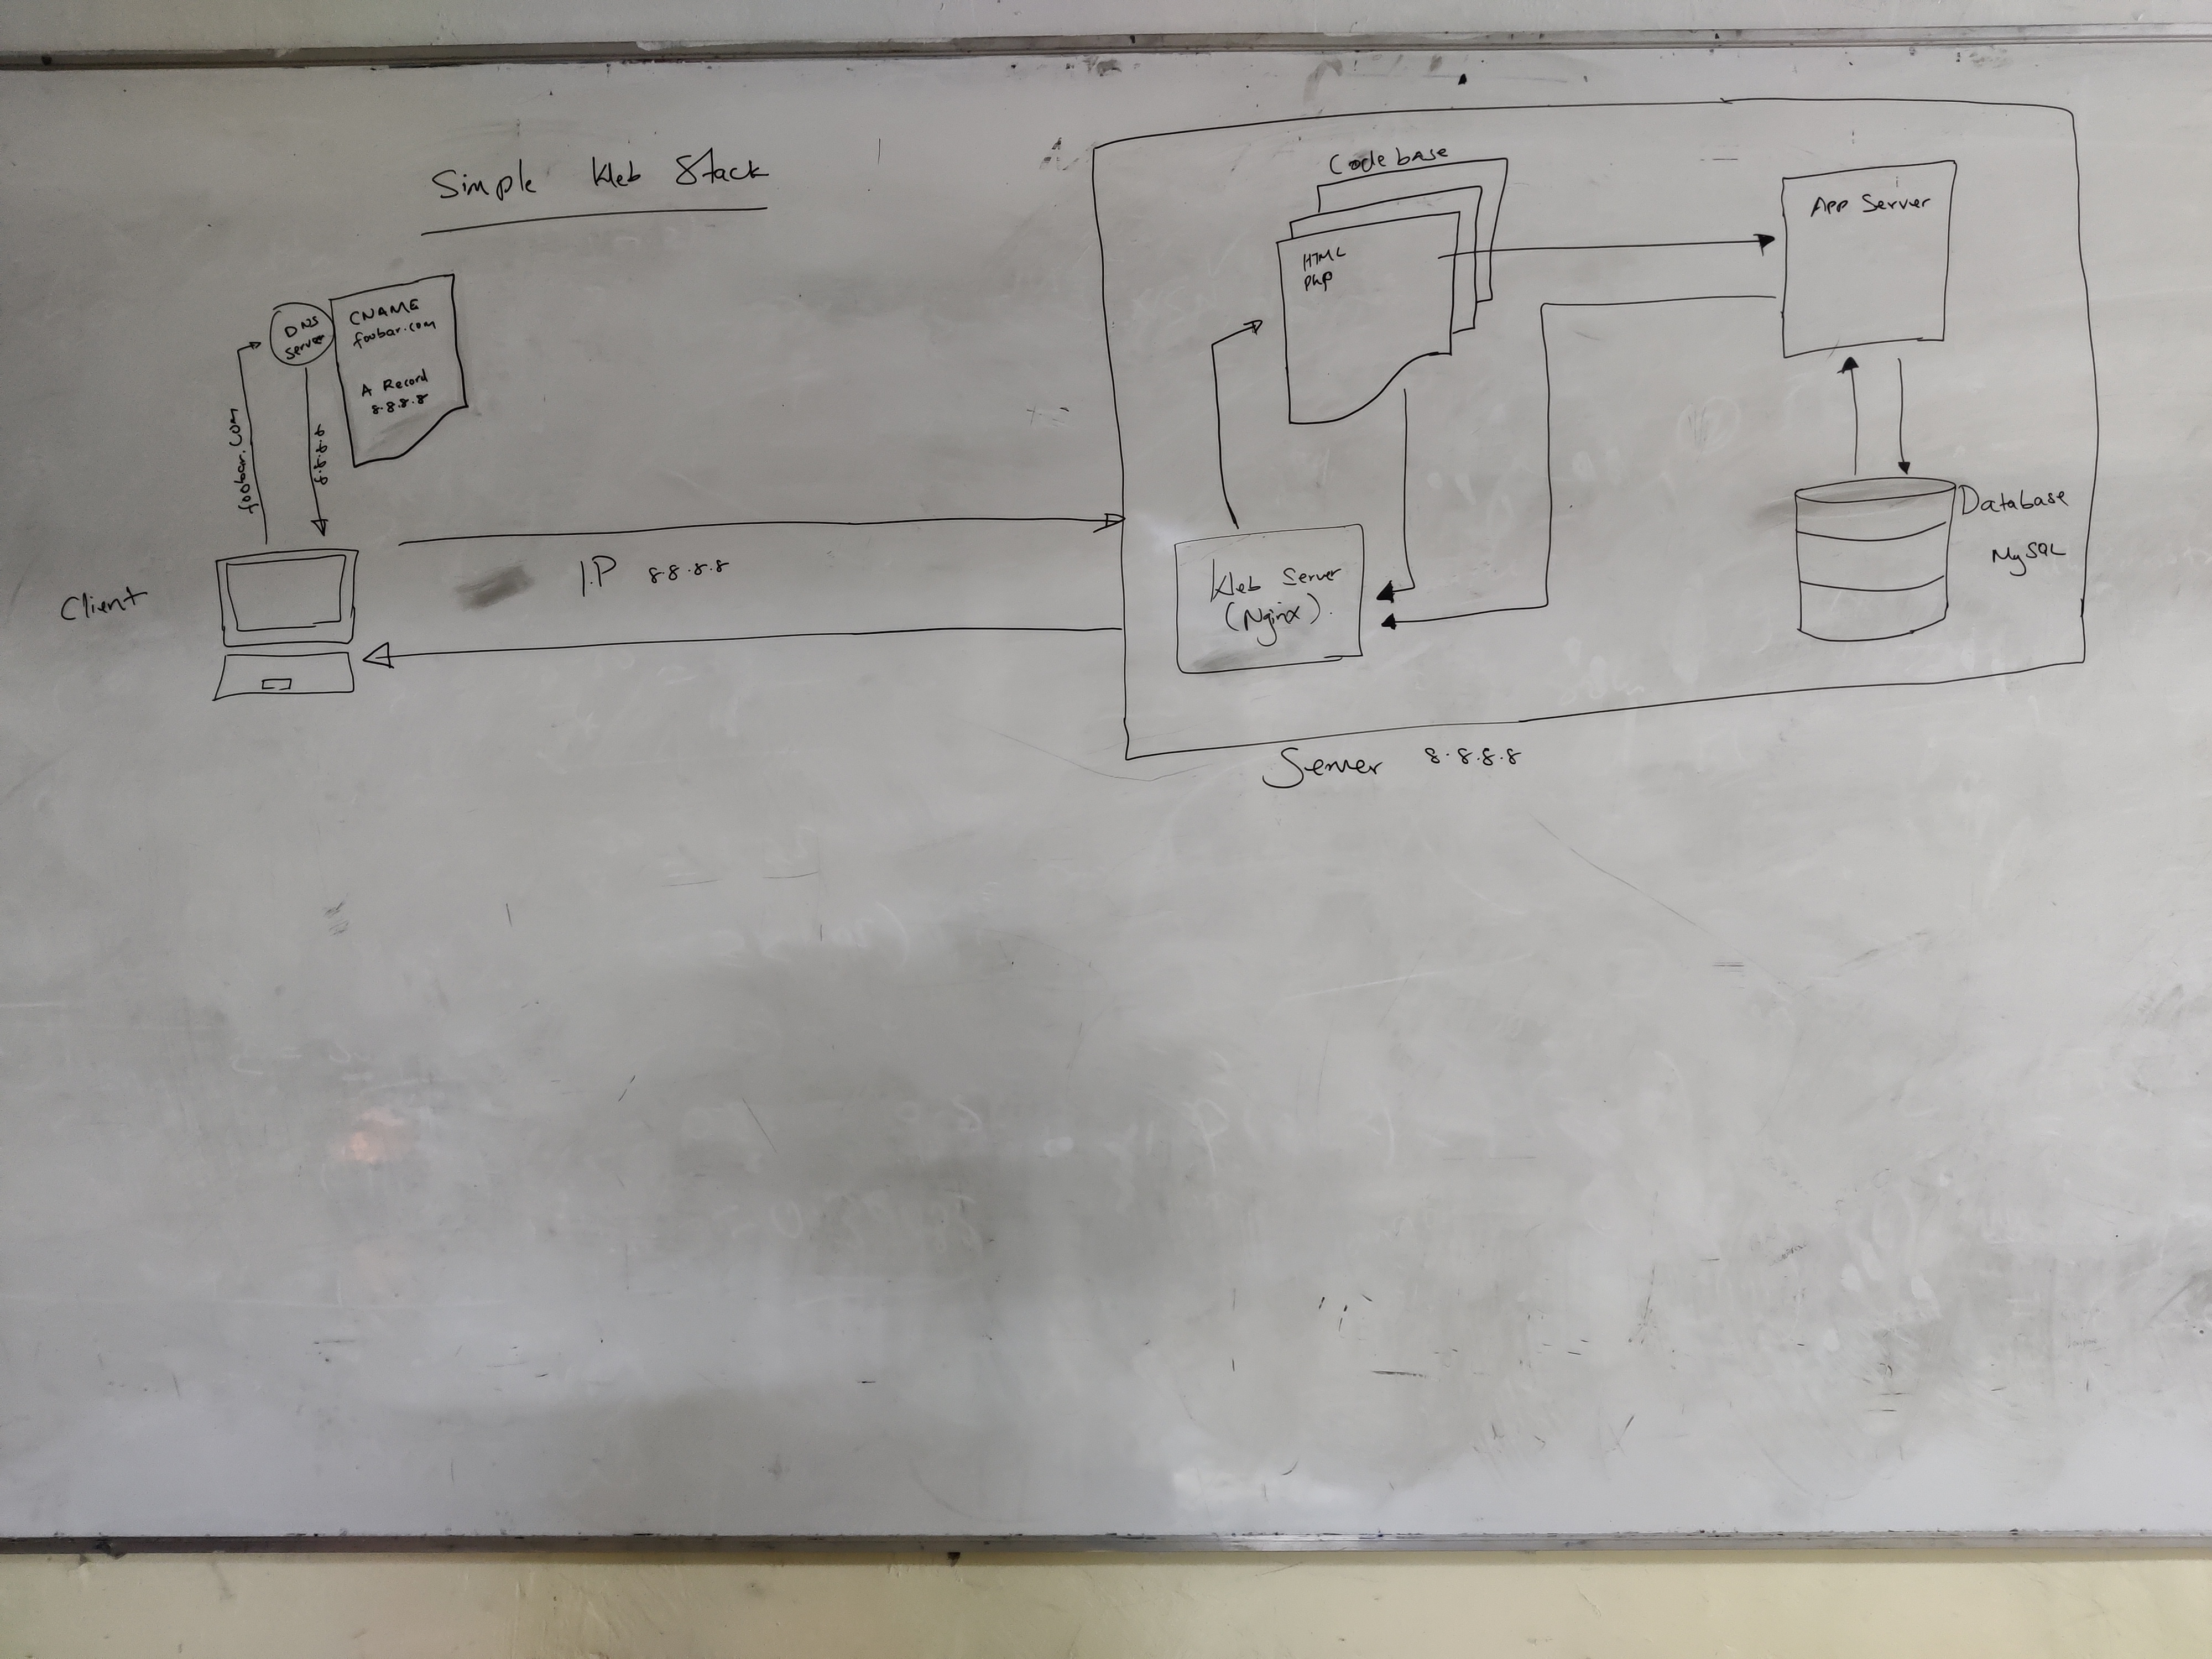 Simple Web Stack
DNS
Server
CNAME
foobar.com
A Record
8.8.8.8
foobar.com
8.8.8.8
Client
I.P 8.8.8.8
Codebase
HTML
PHP
App Server
Web Server
(Nginx).
Database
MySQL
Server 8.8.8.8